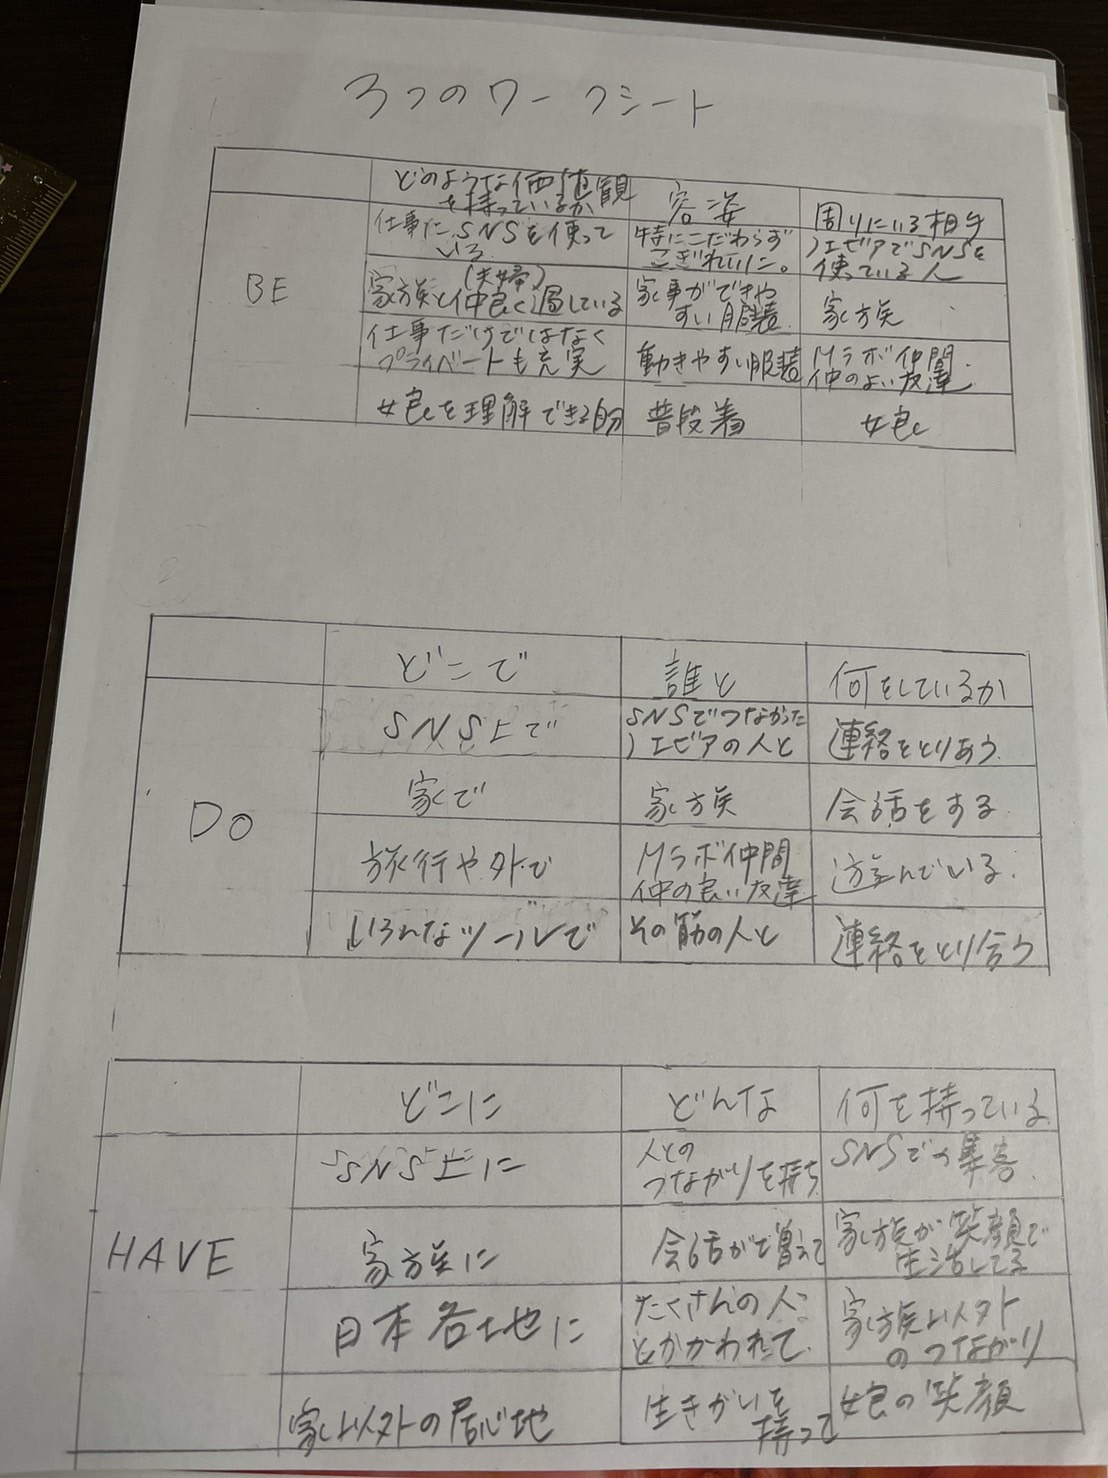 3つのワークシート
どのような価値観
を持っているか
容姿
周りにいる相手
BE
仕事に、SNSを使って
いる
特にこだわらず
こぎれいに。
ノエビアでSNSを
使っている人
(夫婦)
家族と仲良く過している
家事ができや
すい服装
家族
仕事だけではなく
プライベートも充実
動きやすい服装
Mラボ仲間
仲のよい友達
娘を理解できる自分
普段着
娘
どこで
誰と
何をしているか
DO
SNS上で
SNSでつながった
ノエビアの人と
連絡をとりあう
家で
家族
会話をする
旅行や外で
Mラボ仲間
仲の良い友達
遊んでいる.
いろんなツールで
その筋の人と
連絡をとり合う
どこに
どんな
何を持っている
HAVE
SNS上に
人との
つながりを持ち
SNSでの集客
家族に
会話が増えて
家族が笑顔で
生活してる
日本各地に
たくさんの人
とかかわれて
家族以外
のつながり
家以外の居心地
生きがいを
持って
娘の笑顔